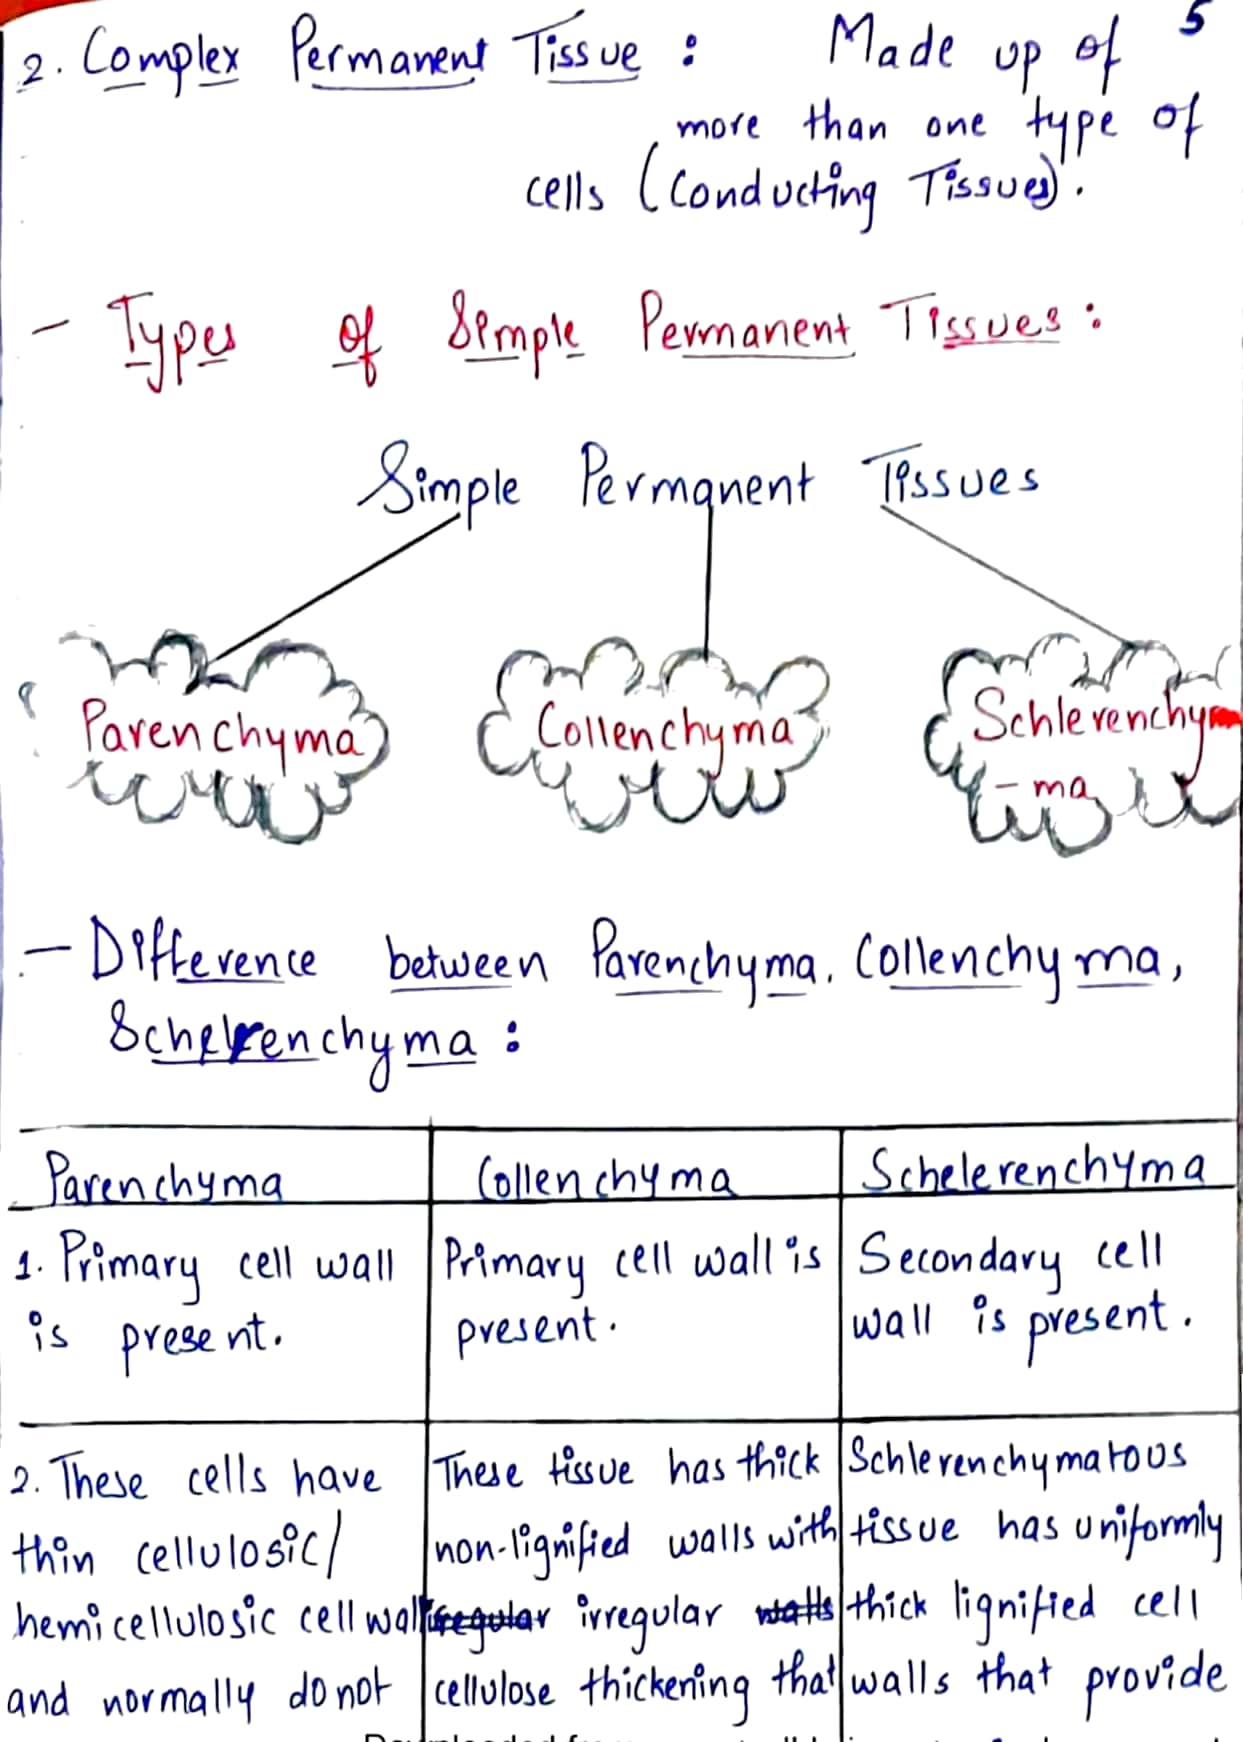 5
2. Complex Permanent Tissue : Made up of
more than one type of
cells (Conducting Tissues).
- Types of Simple Permanent Tissues :
Simple Permanent Tissues
Parenchyma Collenchyma Schlerenchym
- ma
- Difference between Parenchyma, Collenchyma,
Schelrenchyma :
Parenchyma Collenchyma Schelerenchyma
1. Primary cell wall
is present.
Primary cell wall is
present.
Secondary cell
wall is present.
2. These cells have
thin cellulosic/
hemicellulosic cell wall
and normally do not
These tissue has thick
non-lignified walls with
irregular walls
cellulose thickening that
Schlerenchymatous
tissue has uniformly
thick lignified cell
walls that provide